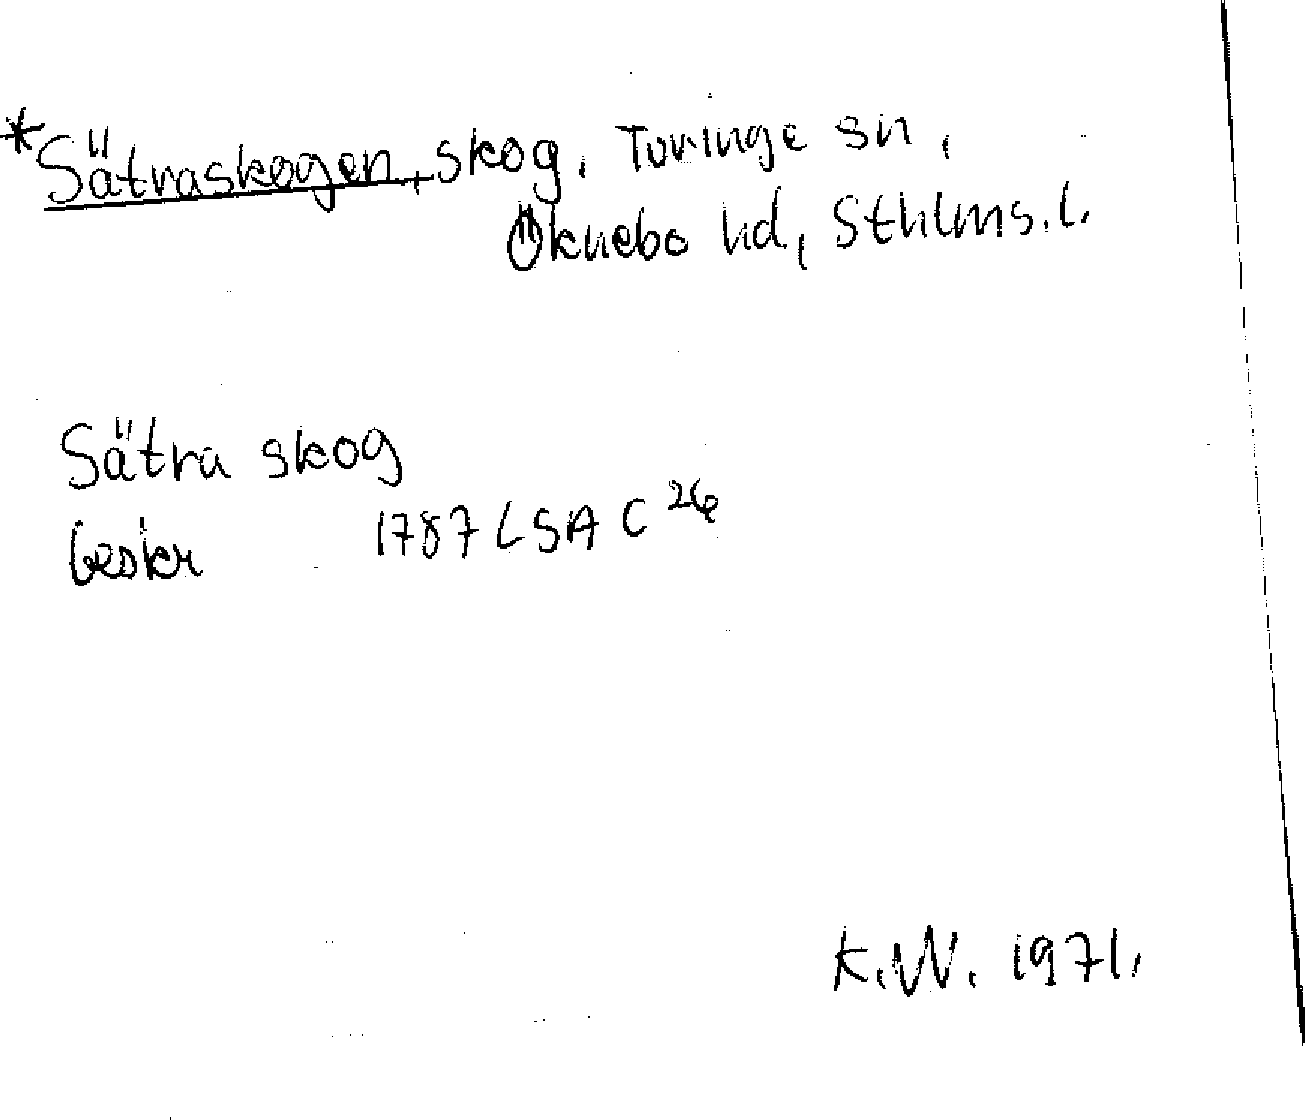 *Sätraskogen, skog, Turinge sn,
Öknebo hd, Sthlms. l.
Sätra skog
beskr 1787 LSA C 26
K.W. 1971.